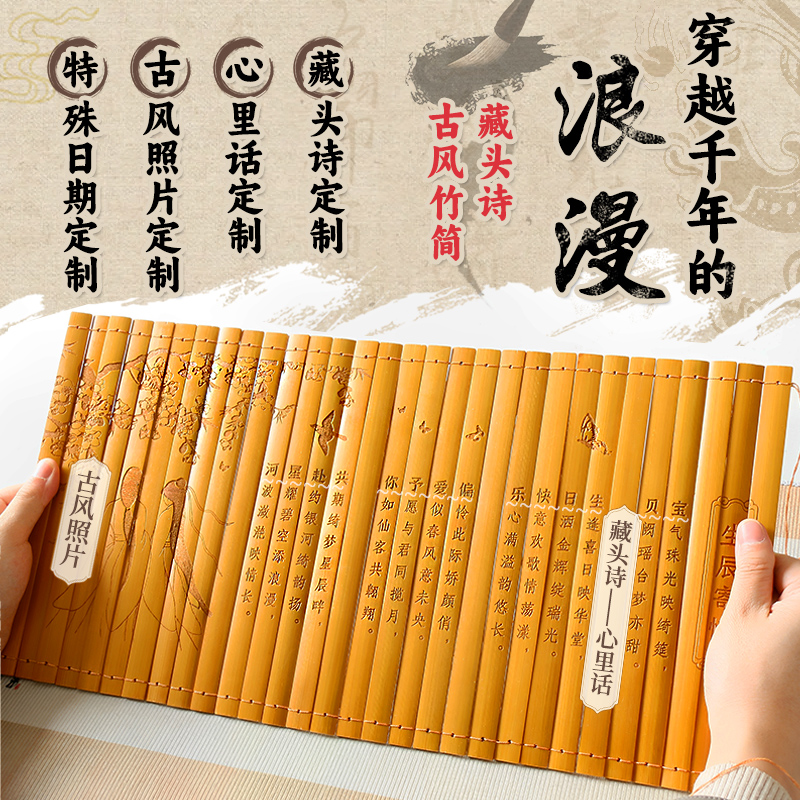 穿越千年的
浪漫
藏头诗
古风竹简
藏头诗定制
心里话定制
古风照片定制
特殊日期定制
生辰寄
宝气珠光映绮筵，
贝阙瑶台梦亦甜。
生逢喜日映华堂，
日洒金辉绽瑞光。
快意欢歌情荡漾，
乐心满溢韵悠长。
偏怜此际娇颜俏，
爱似春风意未央。
予愿与君同揽月，
你如仙客共翱翔。
共期绮梦星辰畔，
赴约银河绮韵扬。
星耀碧空添浪漫，
河波潋滟映情长。
藏头诗——心里话
古风照片